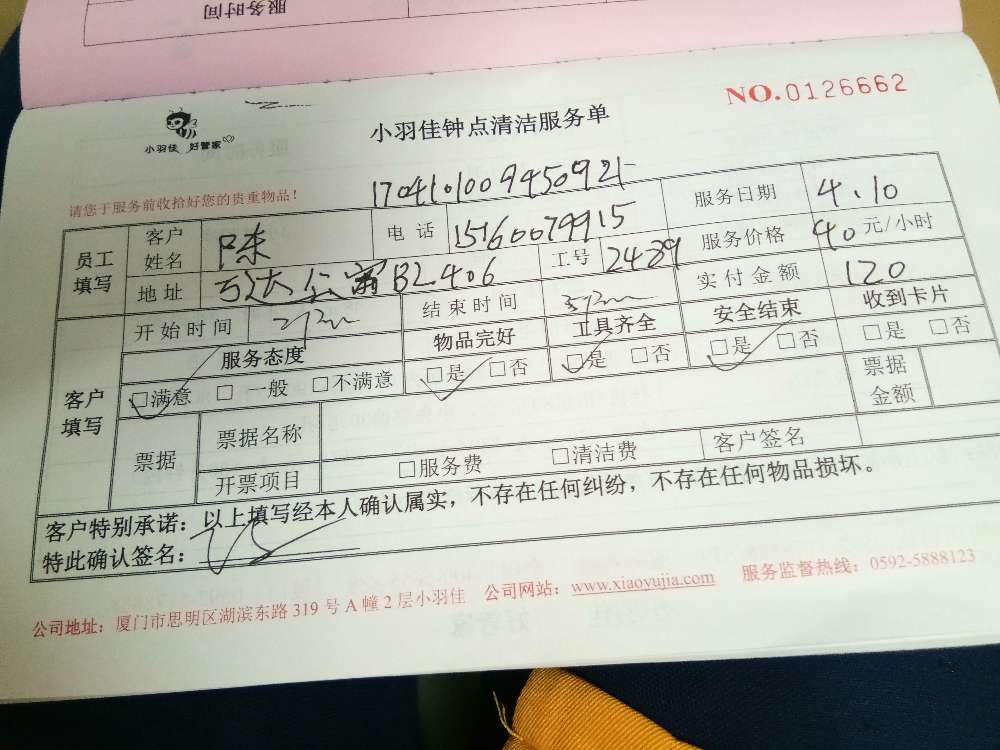 服务时间
NO.0126662
小羽佳 好管家
小羽佳钟点清洁服务单
1704101009450921
请您于服务前收拾好您的贵重物品！
员工填写 客户姓名 陈 电话 15160079915 服务日期 4.10
地址 万达公寓B2.406 工号 2489 服务价格 40 元/小时
开始时间 2pm 结束时间 5pm 实付金额 120
客户填写 服务态度 物品完好 工具齐全 安全结束 收到卡片
□满意 □一般 □不满意 □是 □否 □是 □否 □是 □否 □是 □否
票据 票据名称 票据金额
开票项目 □服务费 □清洁费 客户签名
客户特别承诺：以上填写经本人确认属实，不存在任何纠纷，不存在任何物品损坏。
特此确认签名：
公司地址：厦门市思明区湖滨东路319号A幢2层小羽佳 公司网站：www.xiaoyujia.com 服务监督热线：0592-5888123